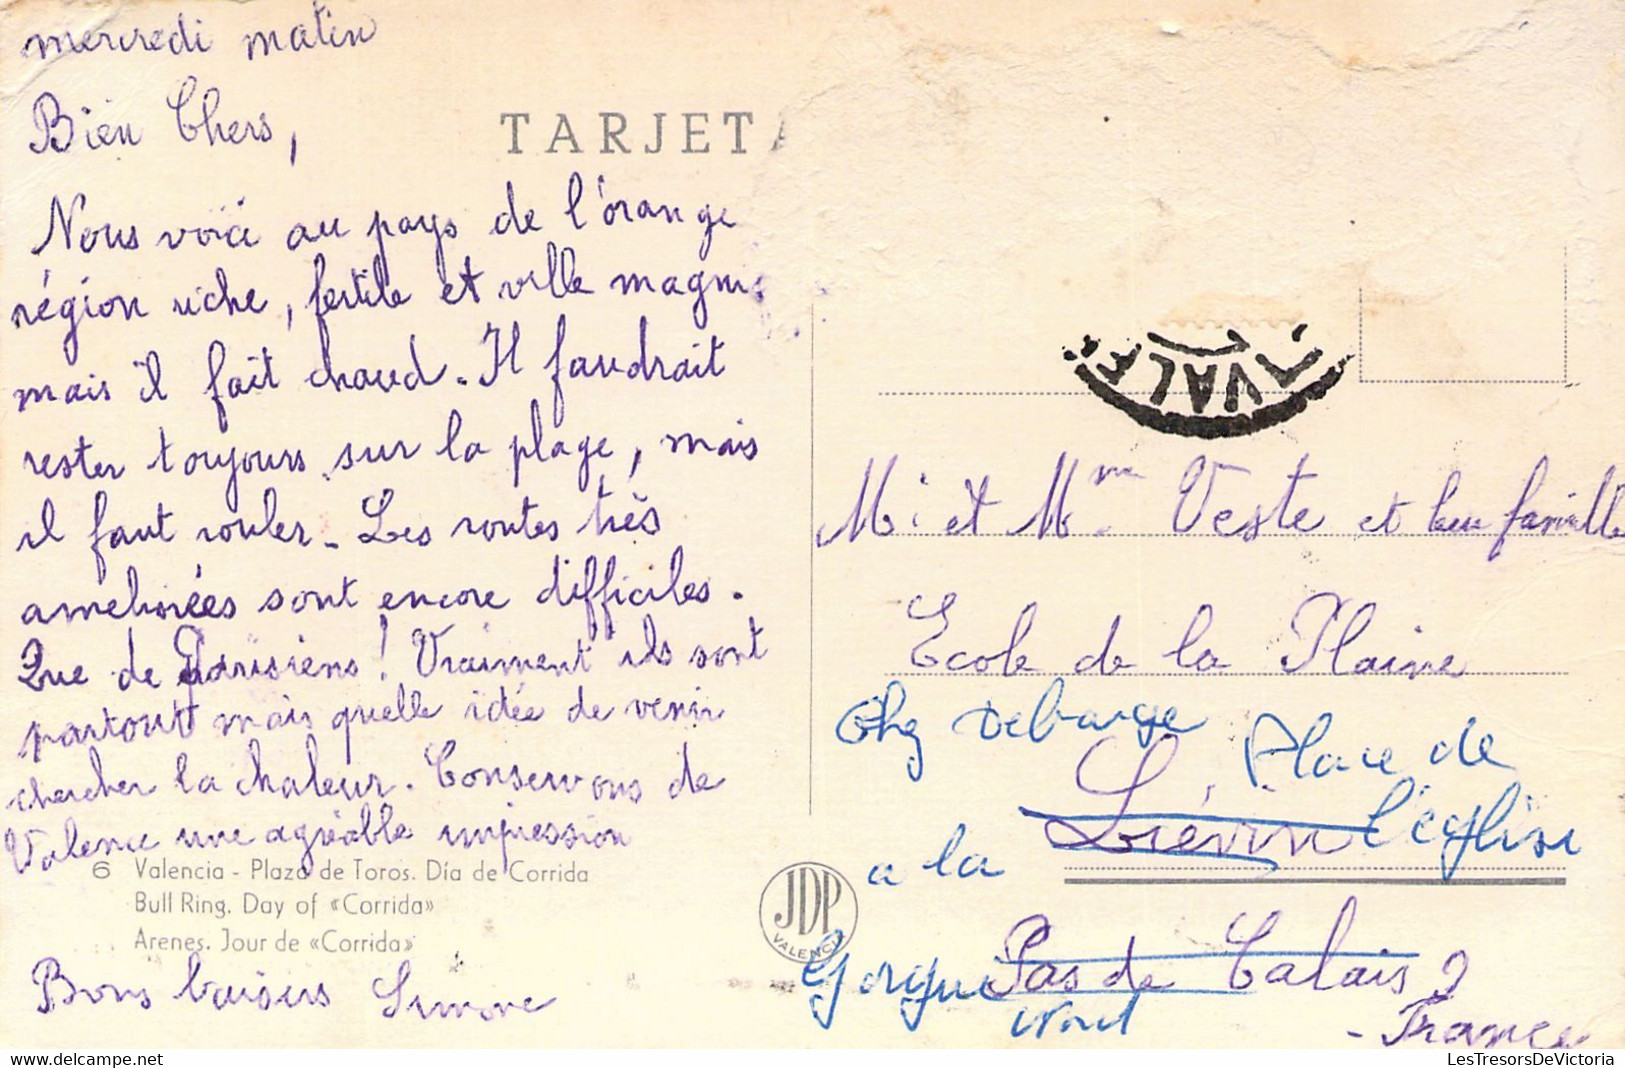 mercredi matin
Bien Chers,
TARJETA
Nous voici au pays de l'orange
région riche, fertile et ville magni
mais il fait chaud. Il faudrait
rester toujours sur la plage, mais
il faut rouler. Les routes très
améliorées sont encore difficiles.
Que de Parisiens! Vraiment ils sont
partout mais quelle idée de venir
chercher la chaleur. Conservons de
Valence une agréable impression
6 Valencia - Plaza de Toros. Día de Corrida
Bull Ring. Day of «Corrida»
Arenes. Jour de «Corrida»
Bons baisers Simone
JDP
VALENCIA
VALE
M. et Mme Veste et leur famille
Ecole de la Plaine
Chez Debarge Place de
Liévin l'église
a la
Gorgue Pas de Calais
Nord
- France
LesTresorsDeVictoria